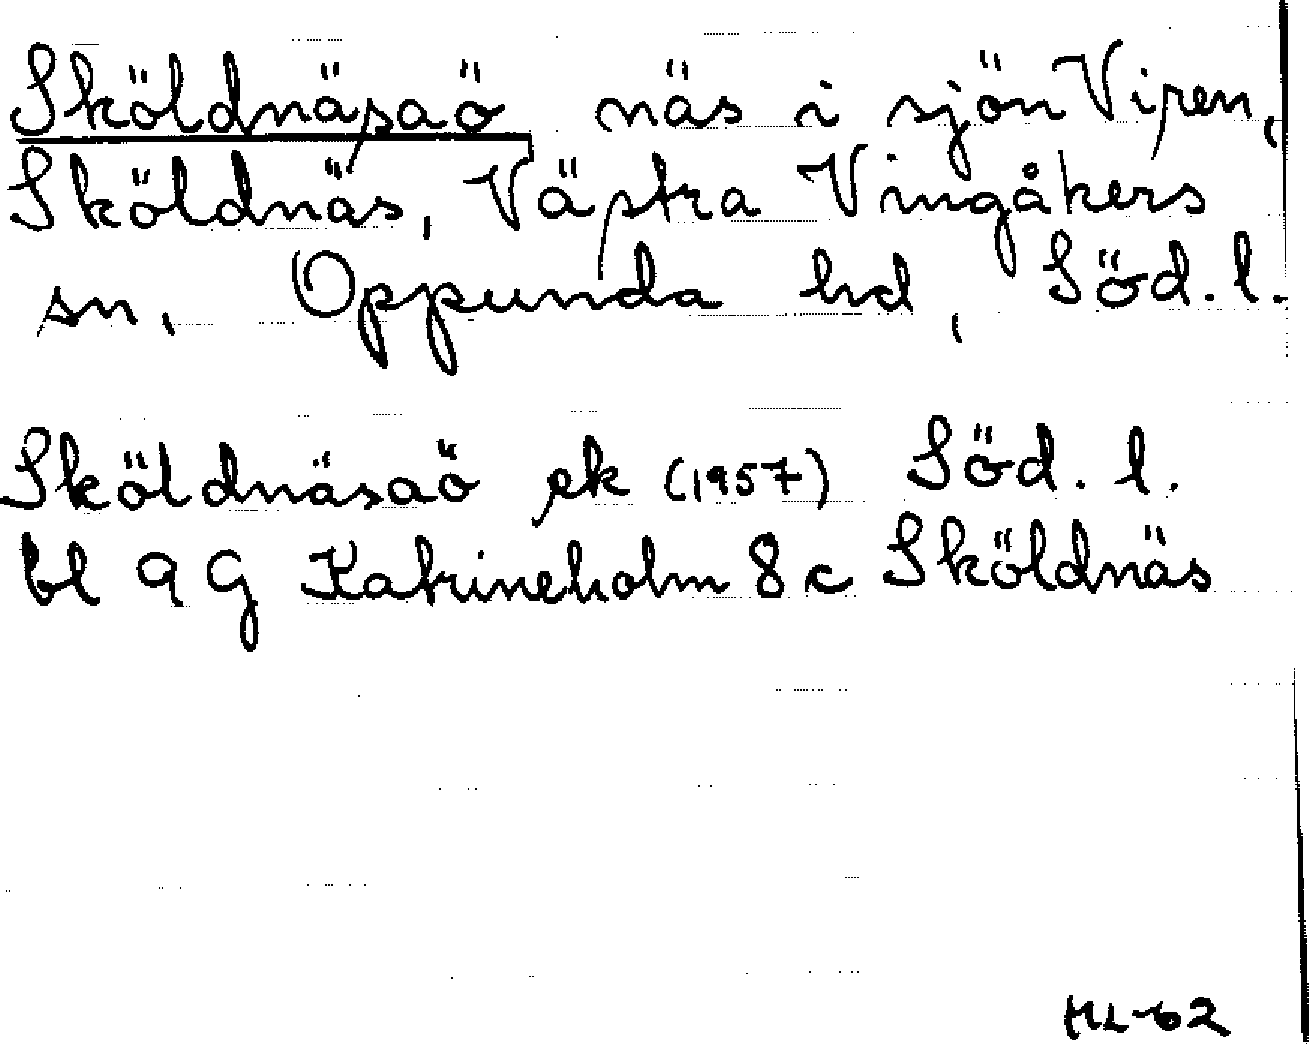 Sköldnäsaö näs i sjön Viren,
Sköldnäs, Västra Vingåkers
sn, Oppunda hd, Söd. l.
Sköldnäsaö ek (1957) Söd. l.
bl 9G Katrineholm 8c Sköldnäs
ML-62